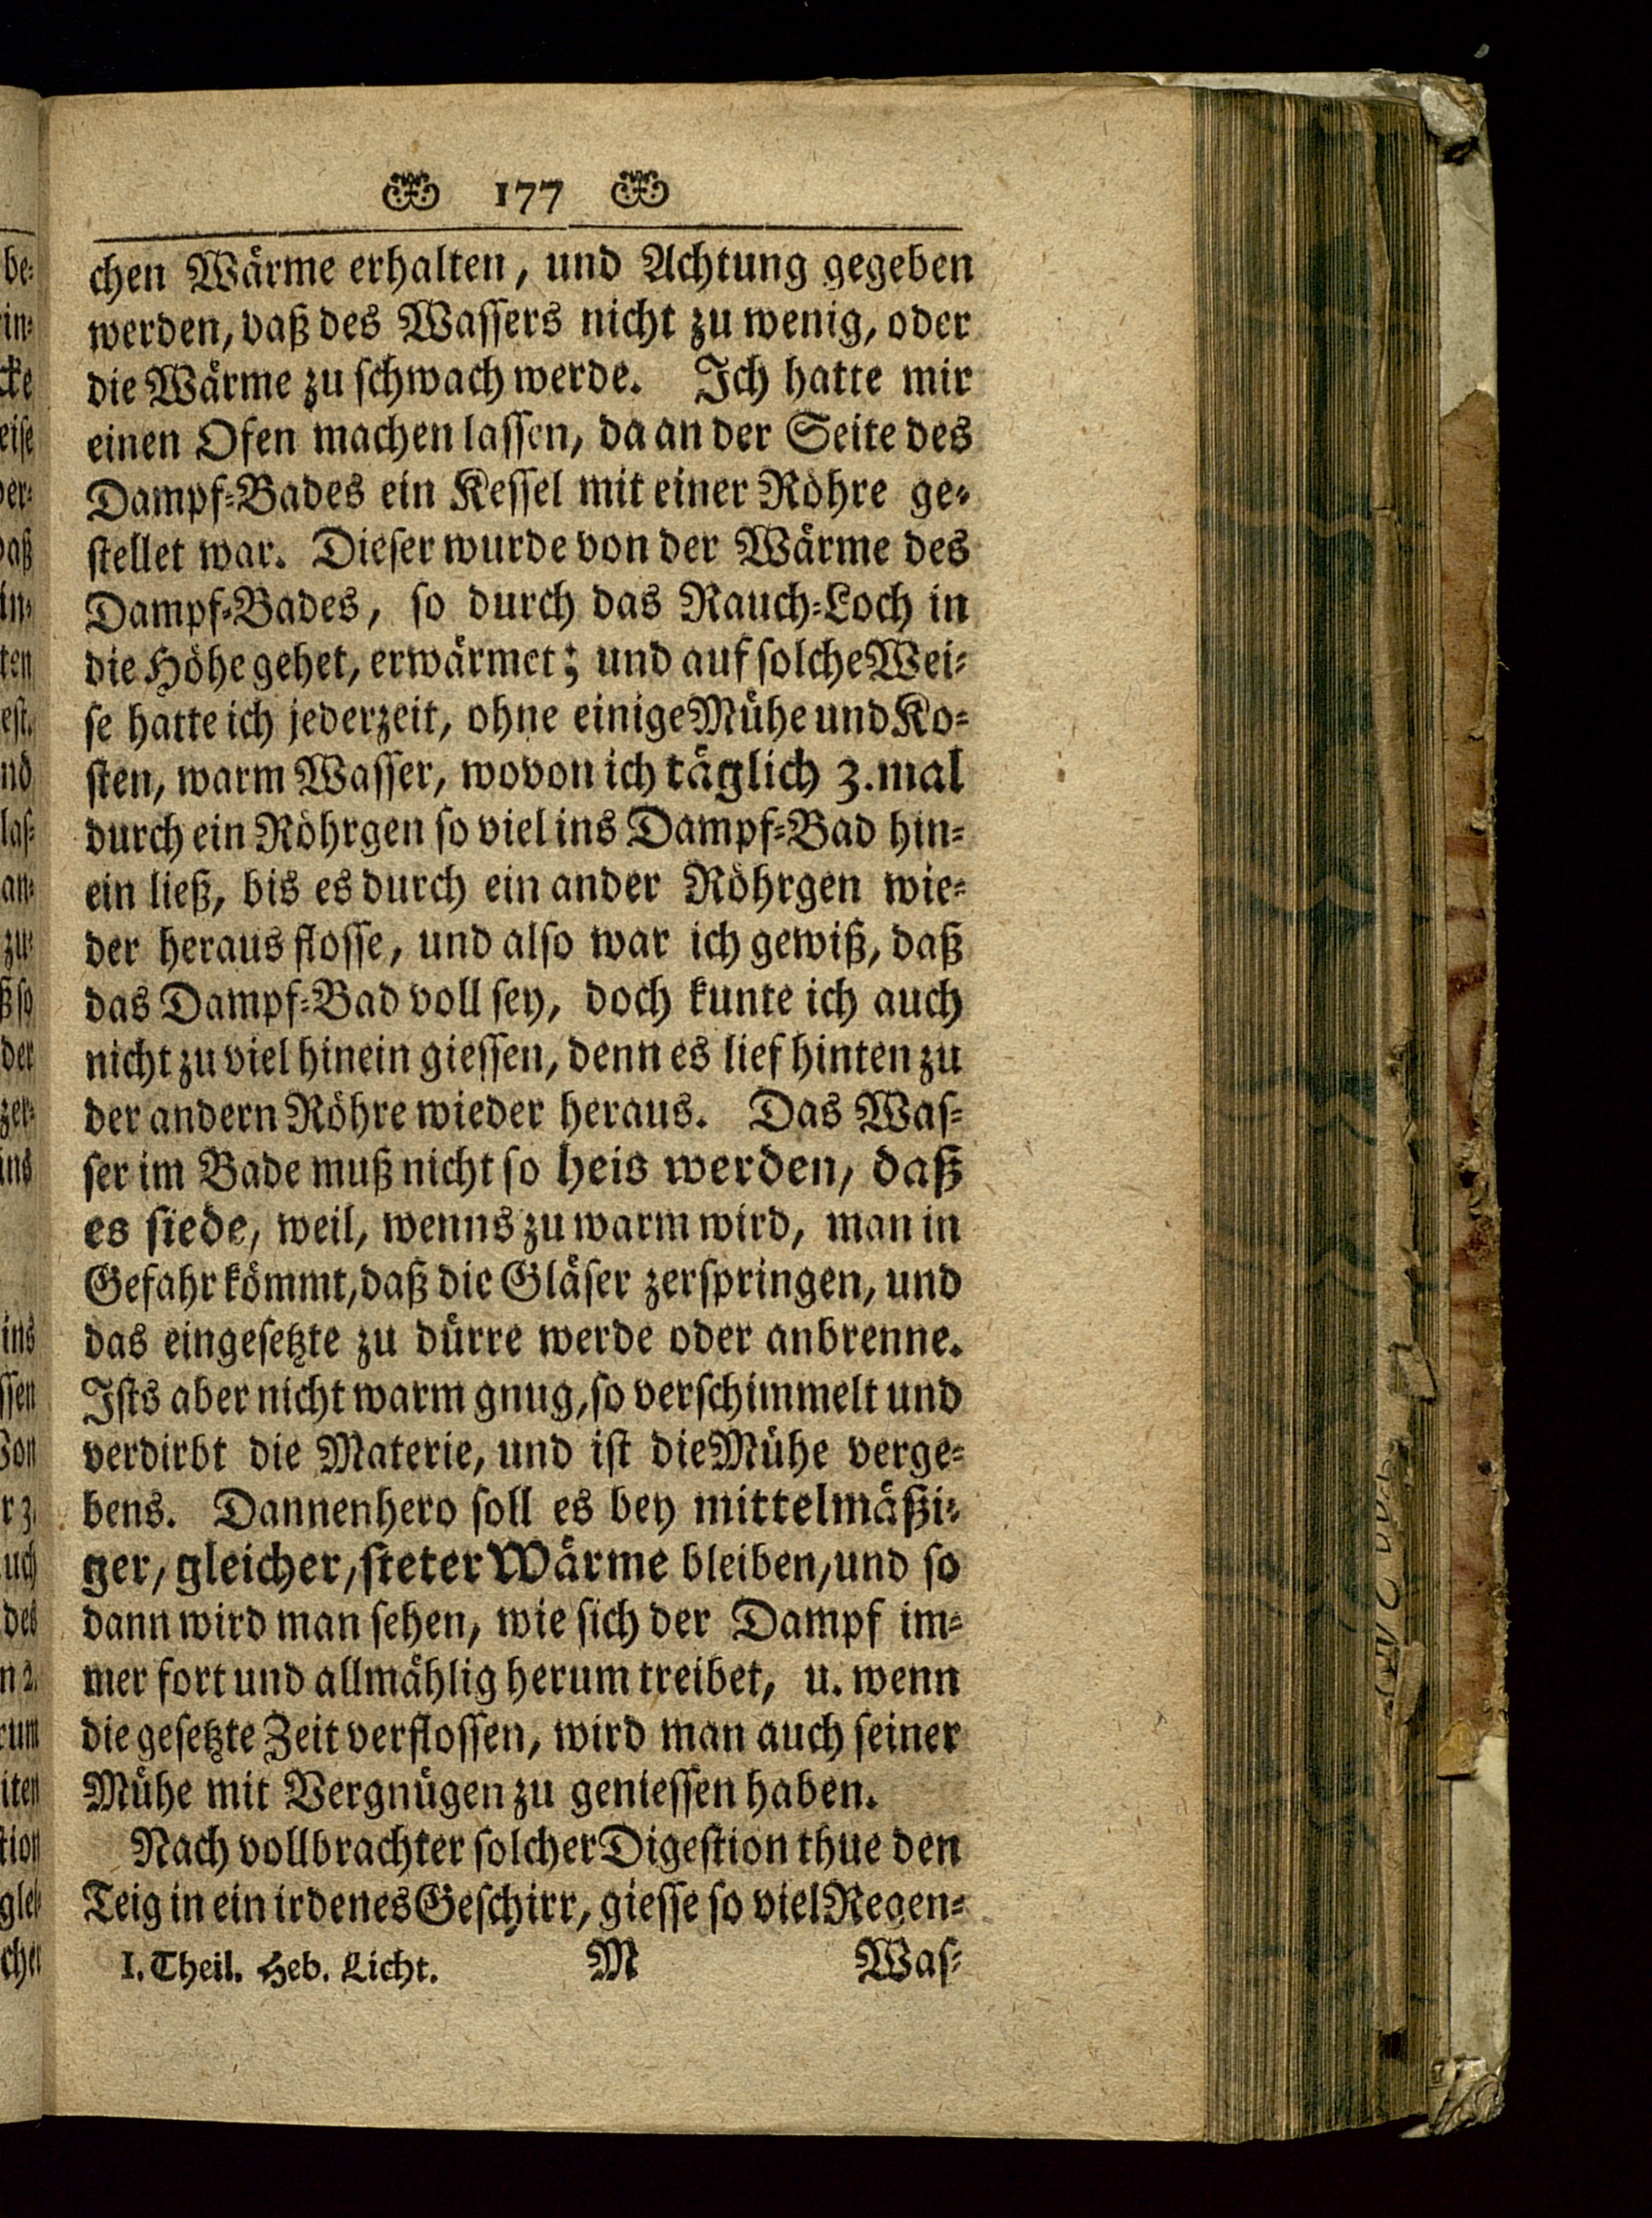 177
chen Wärme erhalten, und Achtung gegeben
werden, daß des Wassers nicht zu wenig, oder
die Wärme zu schwach werde. Ich hatte mir
einen Ofen machen lassen, da an der Seite des
Dampf-Bades ein Kessel mit einer Röhre ge-
stellet war. Dieser wurde von der Wärme des
Dampf-Bades, so durch das Rauch-Loch in
die Höhe gehet, erwärmet; und auf solche Wei-
se hatte ich jederzeit, ohne einige Mühe und Ko-
sten, warm Wasser, wovon ich täglich 3. mal
durch ein Röhrgen so viel ins Dampf-Bad hin-
ein ließ, bis es durch ein ander Röhrgen wie-
der heraus flosse, und also war ich gewiß, daß
das Dampf-Bad voll sey, doch kunte ich auch
nicht zu viel hinein giessen, denn es lief hinten zu
der andern Röhre wieder heraus. Das Was-
ser im Bade muß nicht so heis werden, daß
es siede, weil, wenns zu warm wird, man in
Gefahr kömmt, daß die Gläser zerspringen, und
das eingesetzte zu dürre werde oder anbrenne.
Ists aber nicht warm gnug, so verschimmelt und
verdirbt die Materie, und ist die Mühe verge-
bens. Dannenhero soll es bey mittelmäßi-
ger, gleicher, steter Wärme bleiben, und so
dann wird man sehen, wie sich der Dampf im-
mer fort und allmählig herum treibet, u. wenn
die gesetzte Zeit verflossen, wird man auch seiner
Mühe mit Vergnügen zu geniessen haben.
Nach vollbrachter solcher Digestion thue den
Teig in ein irdenes Geschirr, giesse so viel Regen-
I. Theil. Heb. Licht. M Was-